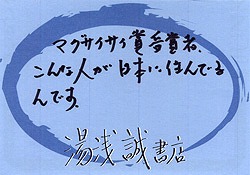 マグサイサイ賞受賞者、
こんな人が日本に住んでる
んです。
湯浅誠書店